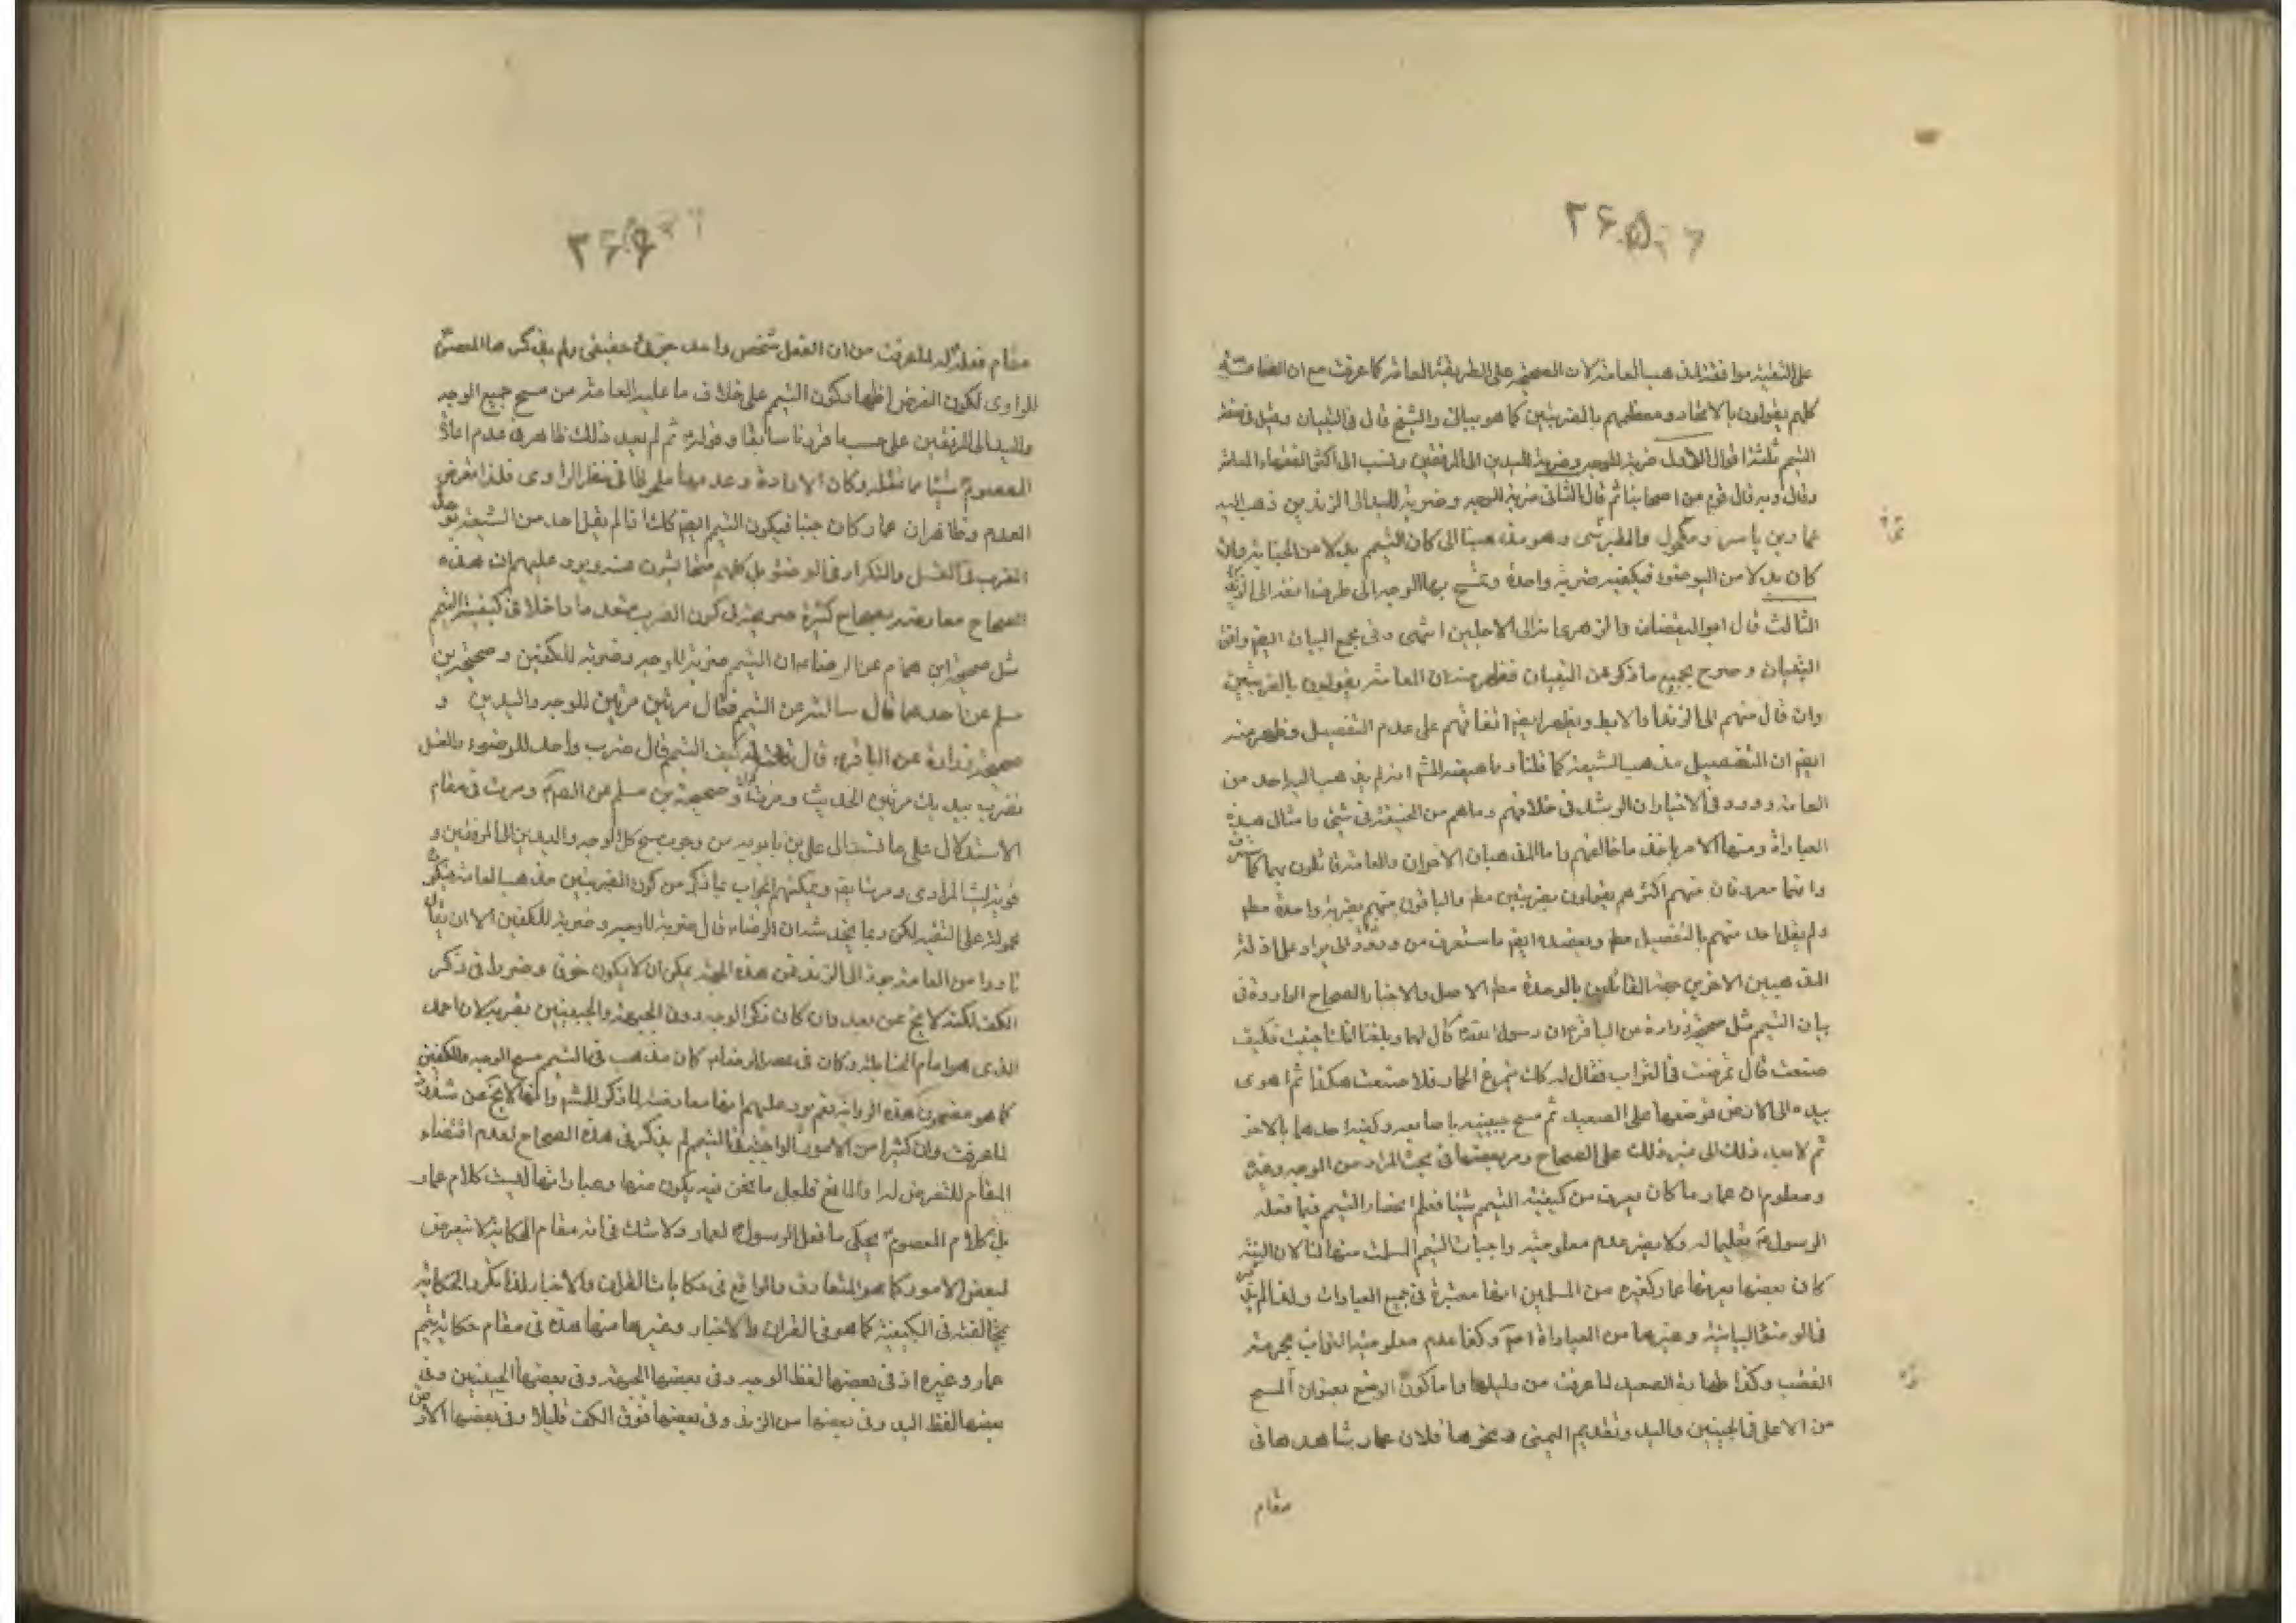 ۲۶۵
على التقية موافقة لمذهب العامة لان الصحيحة على الطريقة العامة كما عرفت مع ان العامة
كلهم يقولون بالاتحاد ومعظمهم بالضربتين كما هو ببالى والشيخ قال فى التبيان وقيل فى صفة
التيمم ثلثة اقوال الاول ضربة للوجه وضربة لليدين الى المرفقين ونسب الى اكثر الفقهاء العامة
وقال وبه قال قوم من اصحابنا ثم قال الثانى ضربة للوجه وضربة لليد الى الزندين ذهب اليه
عمار بن ياسر ومكحول والطبرى وهو مذهبنا اذا كان التيمم بدلا من الجنابة وان
كان بدلا من الوضوء فيكفيه ضربة واحدة ويمسح بها الوجه الى طرف انفه الى
الثالث قال ابو اليقضان والزهرى انه الى الابطين انتهى وفى مجمع البيان ايضا وافق
التبيان و صرح بجميع ما ذكر عن التبيان فظهر منه ان العامة يقولون بالضربتين
وان قال منهم الى الزند او الابط ويظهر ايضا اتفاقهم على عدم التفصيل وظهر منه
ايضا ان التفصيل مذهب الشيعة كما قلنا وما يعضد انه لم يذهب اليه احد من
العامة وورد فى الاخبار ان الرشد فى خلافهم وماهم من الحنيفة فى شئ وامثال هذه
العبارة ومنها الامر باخذ ما خالفهم واما المذهبان الاخران والعامة قائلون بهما كما
وانها معروفان منهم اكثرهم يقولون بضربتين مطلقا والباقون منهم بضربة واحدة مطلقا
ولم يقل احد منهم بالتفصيل مطلقا ويعضده ايضا ما ستعرف من ورود الايراد على ادلة
المذهبين الاخرين حجة القائلين بالوحدة مطلقا الاصل والاخبار الصحاح الواردة فى
بيان التيمم مثل صحيحة زرارة عن الباقر ع ان رسول الله ص قال لعمار بلغنا انك اجنبت فكيف
صنعت قال تمرغت فى التراب فقال له كذلك يتمرغ الحمار افلا صنعت هكذا ثم اهوى
بيده الى الارض فوضعها على الصعيد ثم مسح جبينيه باصابعه وكفيه احدهما بالاخر
ثم لم يعد ذلك الى غير ذلك على الصحاح ومر بعضها فى بحث المراد من الوجه وغيره
ومعلوم ان عمار ما كان يعرف من كيفية التيمم شيئا فعلم انحصار التيمم فيما فعله
الرسول ص تعليما له ولا يضر عدم معلومية واجبات التيمم المسلمة منها لنا لان النية
كان بعضها يعرفها عمار كغيره من المسلمين انها معتبرة فى جميع العبادات ولهذا لم
فى الوضوء البيانية وغيرها من العبادات وكذا عدم معلومية التراب بجرمه
الغصب وكذا طهارة الصعيد لما عرفت من دليلها واما كون الوضع بعنوان المسح
من الاعلى فى الجبينين واليد وتقديم اليمنى ونحوها فلان عمار شاهدها فى
مقام
۲۶۶
مقام فعله له لما عرفت من ان الفعل شخص واحد جزئى حقيقى ولم يذكرها المعصوم
للراوى لكون الغرض اظهار كون التيمم على خلاف ما عليه العامة من مسح جميع الوجه
واليد الى المرفقين على حسب ما قررنا سابقا وقوله ثم لم يعد ذلك ظاهر فى عدم اعادة
المعصوم شيئا مما فعله وكان الاعادة وعدمها ملحوظا فى نظر الراوى فلذا تعرض
العدم وظاهر ان عمار كان جنبا فيكون التيمم ايضا كذلك اذ لم يقل احد من الشيعة
الضرب فى الغسل والتكرار فى الوضوء بل كلهم متحاشون عنه ويرد عليهم ان هذه
الصحاح معارضة بصحاح كثيرة صريحة فى كون الضرب متعددا داخلا فى كيفية التيمم
مثل صحيحة ابن همام عن الرضا ع ان التيمم ضربة للوجه وضربة للكفين وصحيحة بن
مسلم عن احدهما قال سالته عن التيمم فقال مرتين مرتين للوجه واليدين و
صحيحة زرارة عن الباقر ع قال قلت له كيف التيمم قال ضرب واحد للوضوء والغسل
تضرب بيديك مرتين الحديث ومرت و صحيحة بن مسلم عن الصادق ومرت فى مقام
الاستدلال على ما نسب الى على بن بابويه من وجوب مسح كل الوجه واليدين الى المرفقين و
قوية ليث المرادى ومرت ايضا ويمكنهم الجواب بما ذكر من كون الضربتين مذهب العامة فيكون
محمولة على التقية لكن ربما يخدشه ان الرضا ع قال ضربة للوجه وضربة للكفين الا ان يقال
نادرا من العامة جوز الى الزند فمن هذه الجهة يمكن ان لا يكون خوف وضرر فى ذكر
الكف لكنه لا يخ عن بعد وان كان ذكر الوجه دون الجبهة والجبينين يقربه لان احمد
الذى هو امام الحنابلة وكان فى عصر الرضا ع كان مذهبه فى التيمم مسح الوجه والكفين
كما هو مضمون هذه الرواية نعم يرد عليهم انها معارضة لما ذكر وانها لا يخ عن شذوذ
لما عرفت وان كثيرا من الامور الواجبة فى التيمم لم يذكر فى هذه الصحاح لعدم اقتضاء
المقام للتعرض لها والمانع فلعل ما نحن فيه يكون منها وعباراتها ليست كلام عمار
بل كلام المعصوم يحكى ما فعل الرسول ص لعمار ولا شك فى ان مقام الحكاية لا تعرض
لبعض الامور كما هو المتعارف والواقع فى حكايات القران والاخبار لهذا تكرر الحكاية
مخالفة فى الكيفية كما هو فى القران والاخبار وغيرها منها هذه فى مقام حكاية تيمم
عمار وغيره اذ فى بعضها لفظ الوجه وفى بعضها الجبهة وفى بعضها الجبينين وفى
بعضها لفظ اليد وفى بعضها من الزند وفى بعضها فوق الكف قليلا وفى بعضها الارض